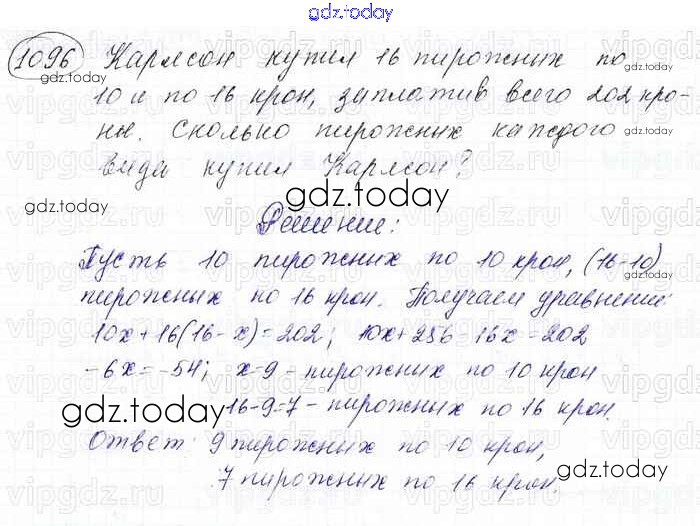 gdz.today
1096 Карлсон купил 16 пирожных по
10 и по 16 крон, заплатив всего 202 кро-
ны. Сколько пирожных каждого
вида купил Карлсон?
Решение:
Пусть 10 пирожных по 10 крон, (16-10)
пирожных по 16 крон. Получаем уравнение:
10x+16(16-x)=202; 10x+256-16x=202
-6x=-54; x=9 - пирожных по 10 крон
16-9=7 - пирожных по 16 крон.
Ответ: 9 пирожных по 10 крон,
7 пирожных по 16 крон.